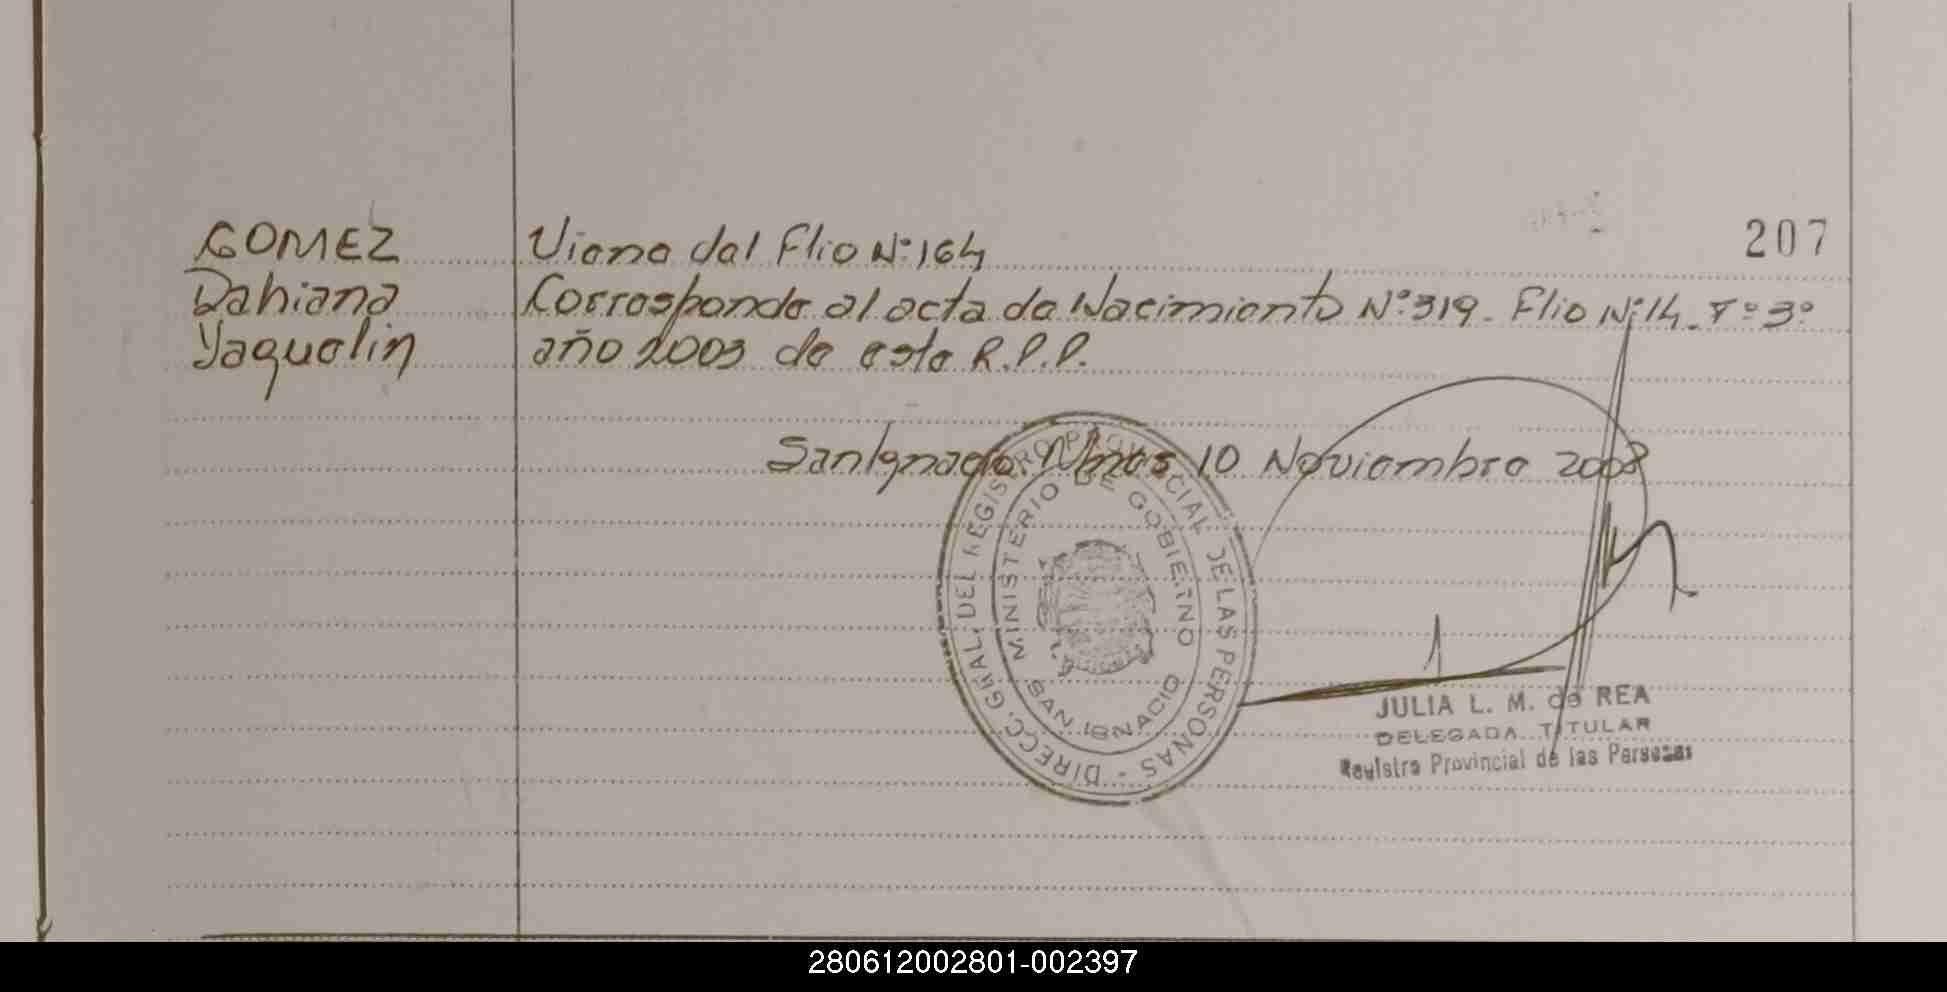 207
GOMEZ Viene del Flio Nº 164
Dahiana Corresponde al acta de Nacimiento Nº 319. Flio Nº 14. Tº 3º
Yaquelin año 2003 de este R.P.P.
San Ignacio. Mnes 10 Noviembre 2008
DIRECC. GRAL. DEL REGISTRO PROVINCIAL DE LAS PERSONAS -
MINISTERIO DE GOBIERNO
SAN IGNACIO
JULIA L. M. de REA
DELEGADA TITULAR
Registro Provincial de las Personas
280612002801-002397